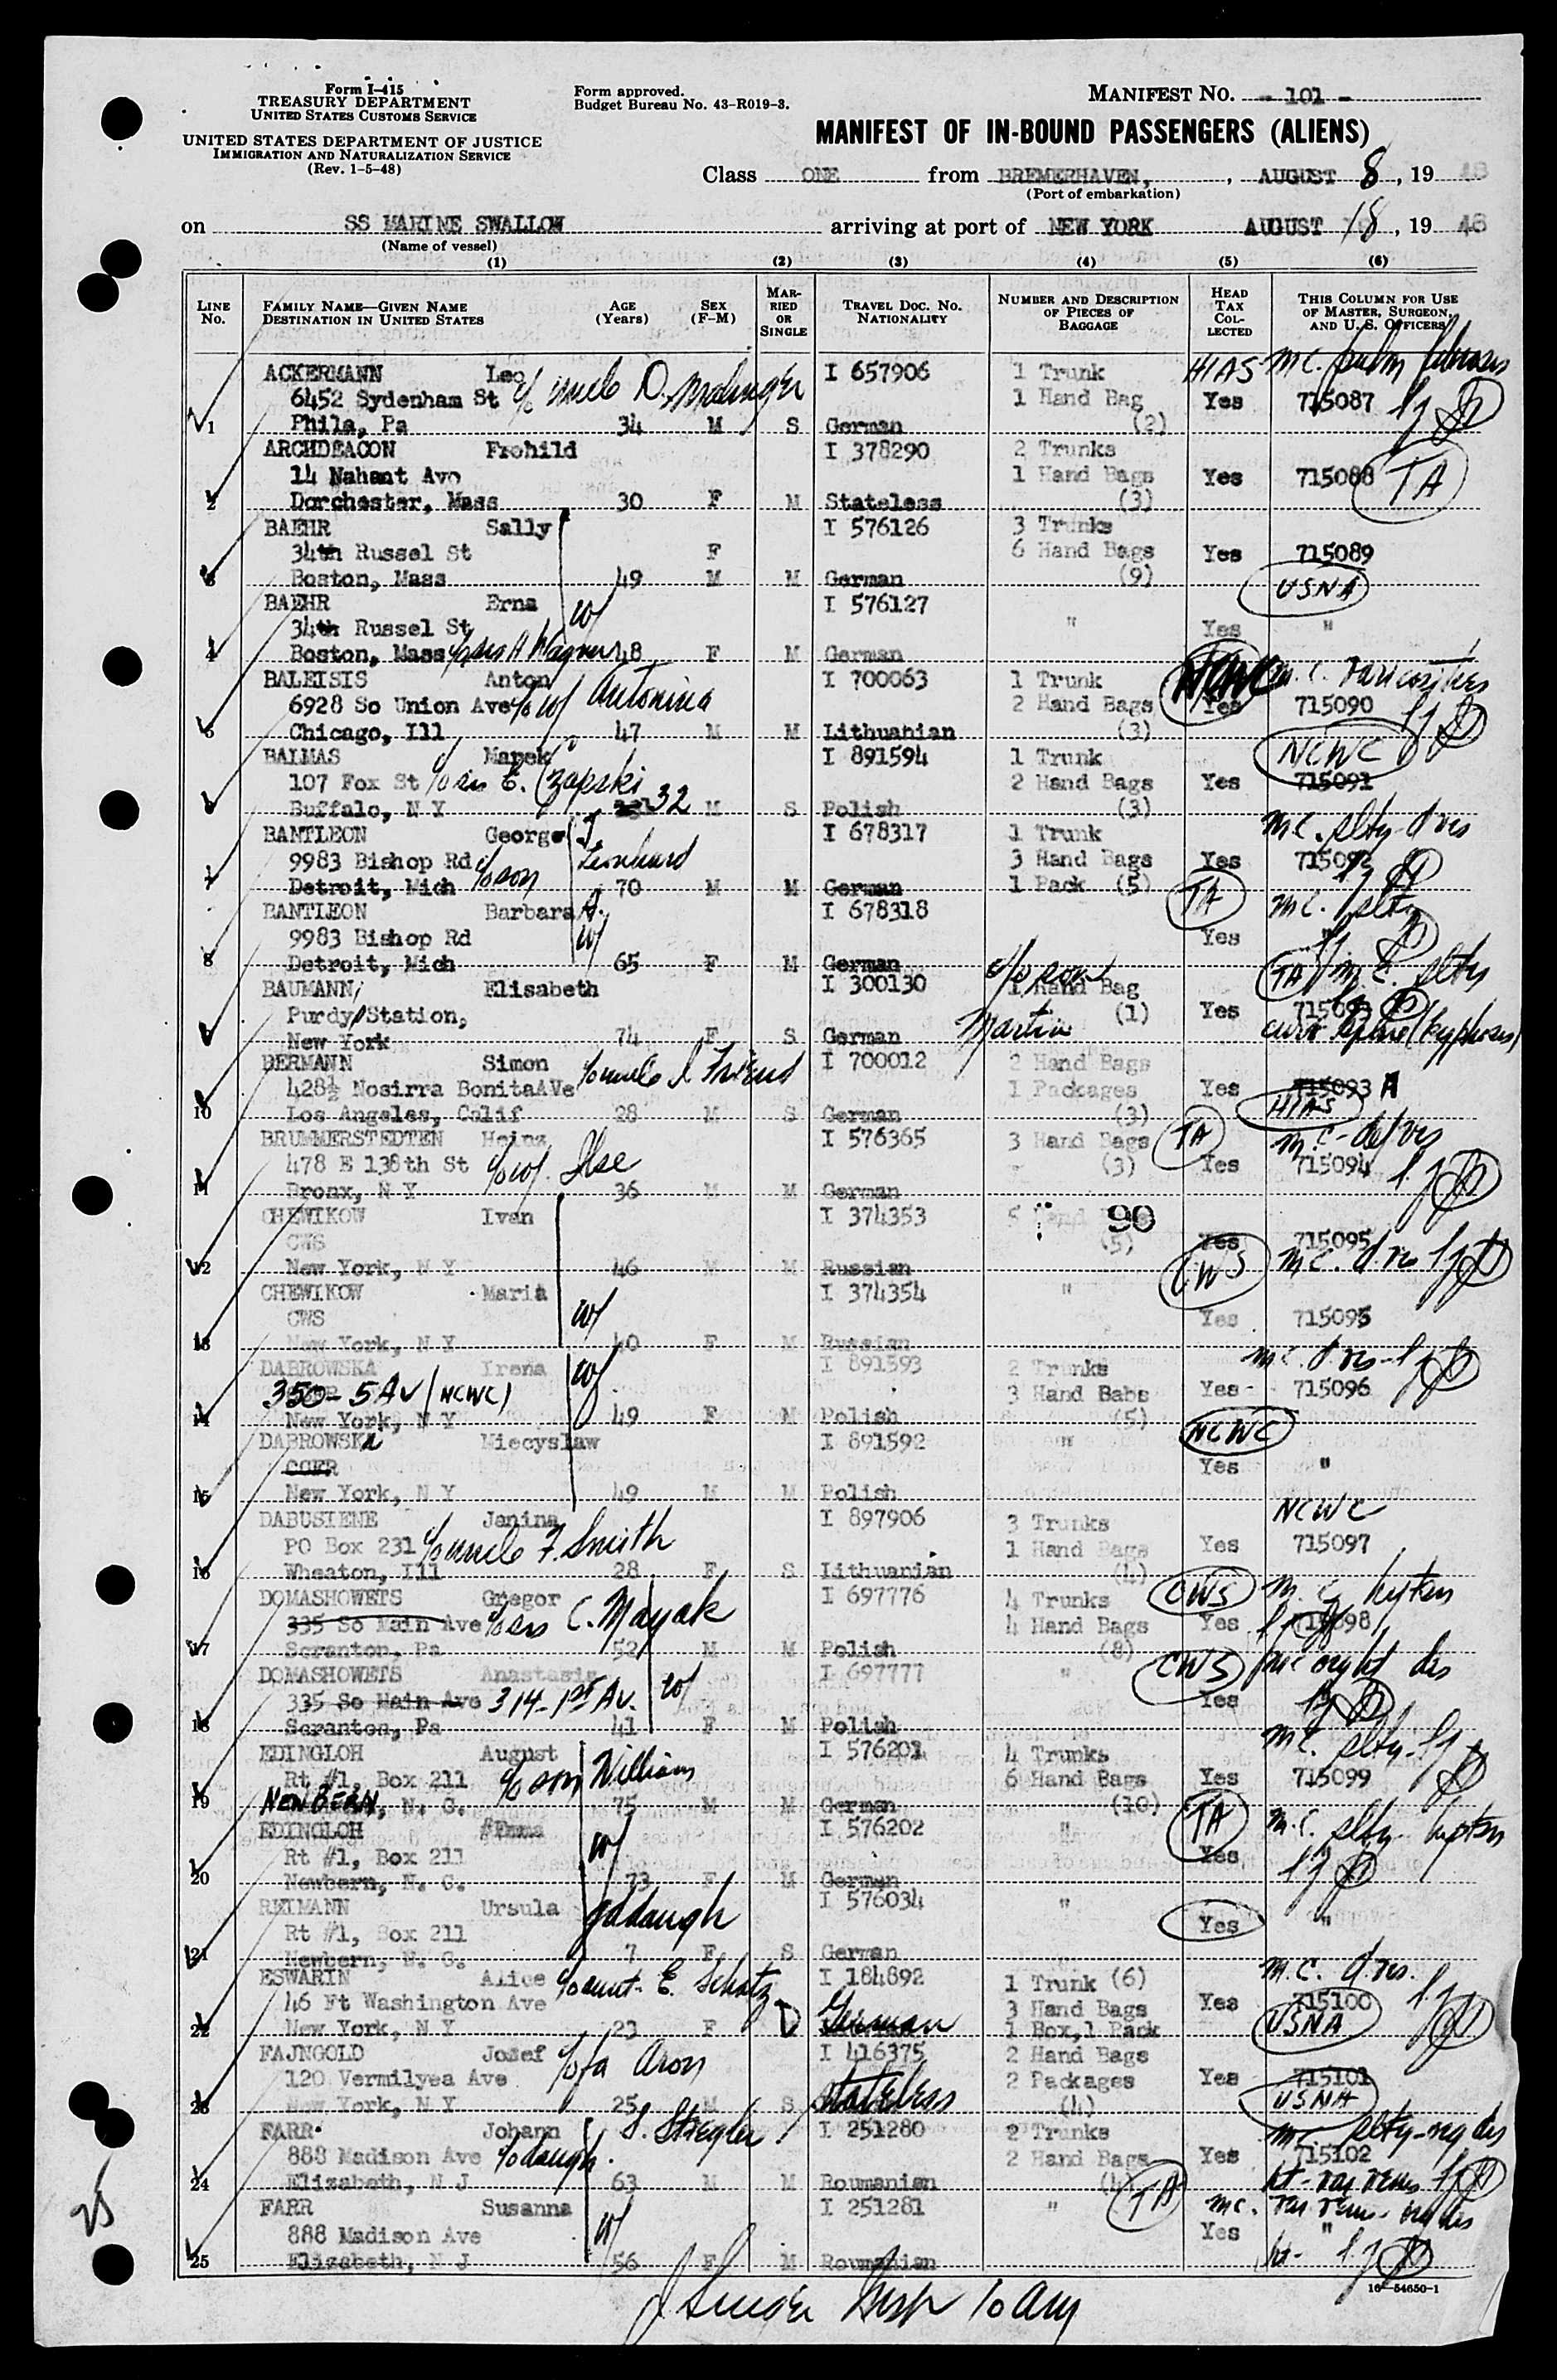 Form I-415
TREASURY DEPARTMENT
UNITED STATES CUSTOMS SERVICE
UNITED STATES DEPARTMENT OF JUSTICE
IMMIGRATION AND NATURALIZATION SERVICE
(Rev. 1-5-48)
Form approved.
Budget Bureau No. 43-R019-3.
MANIFEST NO. - 101 -
MANIFEST OF IN-BOUND PASSENGERS (ALIENS)
Class ONE from BREMERHAVEN, , AUGUST 8, 19 48
(Port of embarkation)
on SS MARINE SWALLOW arriving at port of NEW YORK AUGUST 18, 19 48
(Name of vessel)
(1) (2) (3) (4) (5) (6)
LINE No. FAMILY NAME—GIVEN NAME DESTINATION IN UNITED STATES AGE (Years) SEX (F-M) MARRIED OR SINGLE TRAVEL DOC. NO. NATIONALITY NUMBER AND DESCRIPTION OF PIECES OF BAGGAGE HEAD TAX COLLECTED THIS COLUMN FOR USE OF MASTER, SURGEON, AND U. S. OFFICERS
ACKERMANN Leo I 657906 1 Trunk HIAS mc.
6452 Sydenham St c/o uncle D. 1 Hand Bag Yes 715087
1 Phila, Pa 34 M S German (2)
ARCHDEACON Frohild I 378290 2 Trunks
14 Nahant Ave 1 Hand Bags Yes 715088 TA
2 Dorchester, Mass 30 F M Stateless (3)
BAEHR Sally I 576126 3 Trunks
34th Russel St F 6 Hand Bags Yes 715089
3 Boston, Mass 49 M M German (9) USNA
BAEHR Erna w/ I 576127
34th Russel St " Yes "
4 Boston, Mass 48 F M German
BALEISIS Anton I 700063 1 Trunk NCWC m.c. varicosities
6928 So Union Ave c/o w/ Antonina 2 Hand Bags Yes 715090
5 Chicago, Ill 47 M M Lithuanian (3)
BALMAS Marek I 891594 1 Trunk NCWC
107 Fox St c/o sis E. Czapski 2 Hand Bags Yes 715091
6 Buffalo, N Y 32 M S Polish (3)
BANTLEON George I 678317 1 Trunk mc. slty d ves
9983 Bishop Rd c/o son Leonhard 3 Hand Bags Yes 715092
7 Detroit, Mich 70 M M German 1 Pack (5)
BANTLEON Barbara A. w/ I 678318 TA mc. slty
9983 Bishop Rd Yes "
8 Detroit, Mich 65 F M German
BAUMANN, Elisabeth I 300130 c/o son 1 Hand Bag TA m.c. slty
Purdy Station, Martin (1) Yes 715093
9 New York 74 F S German curv. spine (kyphosis)
BERMANN Simon c/o uncle I Friend I 700012 2 Hand Bags
428½ Nosirra BonitaAVe 1 Packages Yes 715093 A
10 Los Angeles, Calif 28 M S German (3) HIAS
BRUMMERSTEDTEN Heinz I 576365 3 Hand Bags TA mc-
478 E 138th St c/o w/. Ilse (3) Yes 715094
11 Bronx, N Y 36 M M German
CHEWIKOW Ivan I 374353 5 Hand 90
CWS (5) Yes 715095
12 New York, N Y 46 M M Russian CWS mc. d ves
CHEWIKOW Maria w/ I 374354 "
CWS Yes 715095
13 New York, N Y 40 F M Russian
DABROWSKA Irena w/ I 891593 2 Trunks mc. d ves
350-5 Av (NCWC) 3 Hand Babs Yes 715096
14 New York, N Y 49 F M Polish (5)
DABROWSKI Miecyslaw I 891592 " NCWC
CGER Yes "
15 New York, N Y 49 M M Polish
DABUSIENE Janina I 897906 3 Trunks NCWC
PO Box 231 c/o uncle F. Smith 1 Hand Bags Yes 715097
16 Wheaton, Ill 28 F S Lithuanian (4)
DOMASHOWETS Gregor I 697776 4 Trunks CWS m.c. hyten
335 So Main Ave c/o sis C. Mayak 4 Hand Bags Yes 715098
17 Scranton, Pa 52 M M Polish (8)
DOMASHOWETS Anastasia w/ I 697777 " CWS mc
335 So Main Ave 314-1st Av. Yes
18 Scranton, Pa 41 F M Polish
EDINGLOH August I 576201 4 Trunks mc. slty
Rt #1, Box 211 c/o son William 6 Hand Bags Yes 715099
19 NEW BERN, N. C. 75 M M German (10)
EDINGLOH Emma w/ I 576202 " TA m.c. slty
Rt #1, Box 211 Yes
20 Newbern, N. C. 73 F M German
REIMANN Ursula gddaugh I 576034 "
Rt #1, Box 211 Yes "
21 Newbern, N. C. 7 F S German
ESWARIN Alice c/o aunt- E. Schatz I 184892 1 Trunk (6) m.c. d ves.
46 Ft Washington Ave 3 Hand Bags Yes 715100
22 New York, N Y 23 F D German 1 Box,1 Pack USNA
FAJNGOLD Josef c/o fa Aron I 416375 2 Hand Bags
120 Vermilyea Ave 2 Packages Yes 715101
23 New York, N Y 25 M S Stateless (4) USNA
FARR Johann S. Stiegler I 251280 2 Trunks mc slty-
888 Madison Ave c/o daugh. 2 Hand Bags Yes 715102
24 Elizabeth, N J 63 M M Roumanian (4)
FARR Susanna w/ I 251281 " TA mc.
888 Madison Ave Yes "
25 Elizabeth, N J 56 F M Roumanian
25
16—54650-1
J Singer Insp 10 am